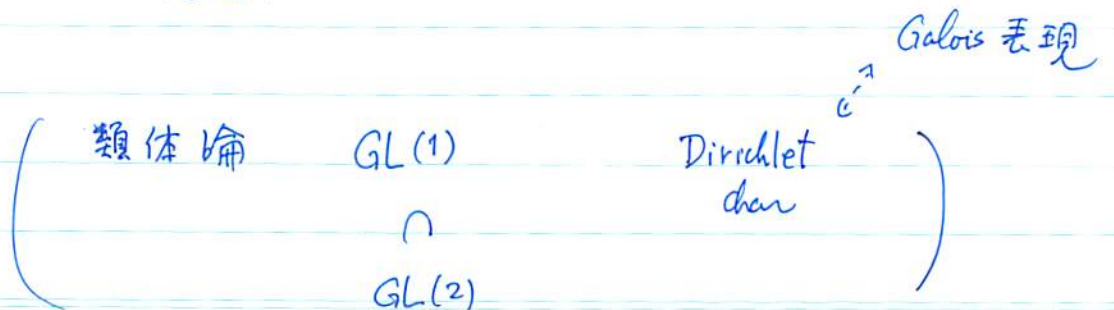 Galois 表現
類体論 GL(1) Dirichlet
char
∩
GL(2)